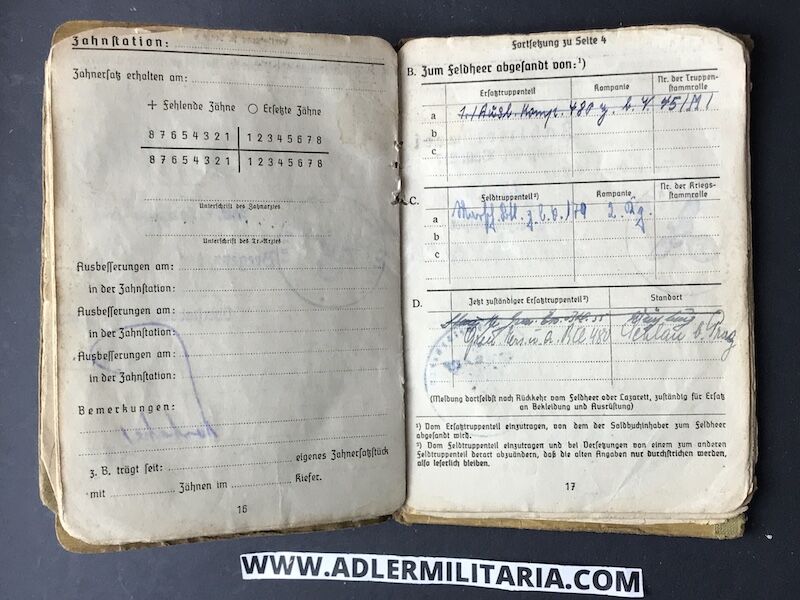 Zahnstation:
Zahnersatz erhalten am:
+ Fehlende Zähne ○ Ersetzte Zähne
8 7 6 5 4 3 2 1 | 1 2 3 4 5 6 7 8
8 7 6 5 4 3 2 1 | 1 2 3 4 5 6 7 8
Unterschrift des Zahnarztes
Unterschrift des Tr.-Arztes
Ausbesserungen am:
in der Zahnstation:
Ausbesserungen am:
in der Zahnstation:
Ausbesserungen am:
in der Zahnstation:
Bemerkungen:
z. B. trägt seit: eigenes Zahnersatzstück
mit Zähnen im Kiefer.
16
Fortsetzung zu Seite 4
B. Zum Feldheer abgesandt von:¹)
Ersatztruppenteil Kompanie Nr. der Truppenstammrolle
a 1./Ausb. Komp. 480 z. b. V.
b
c
C. Feldtruppenteil²) Kompanie Nr. der Kriegsstammrolle
a Marsch Btl. z. b. V. 2. Kp.
b
c
D. Jetzt zuständiger Ersatztruppenteil²) Standort
Gren. Ers. u. A. Btl 480
(Meldung dortselbst nach Rückkehr vom Feldheer oder Lazarett, zuständig für Ersatz
an Bekleidung und Ausrüstung)
¹) Vom Ersatztruppenteil einzutragen, von dem der Soldbuchinhaber zum Feldheer
abgesandt wird.
²) Vom Feldtruppenteil einzutragen und bei Versetzungen von einem zum anderen
Feldtruppenteil derart abzuändern, daß die alten Angaben nur durchstrichen werden,
also leserlich bleiben.
17
WWW.ADLERMILITARIA.COM